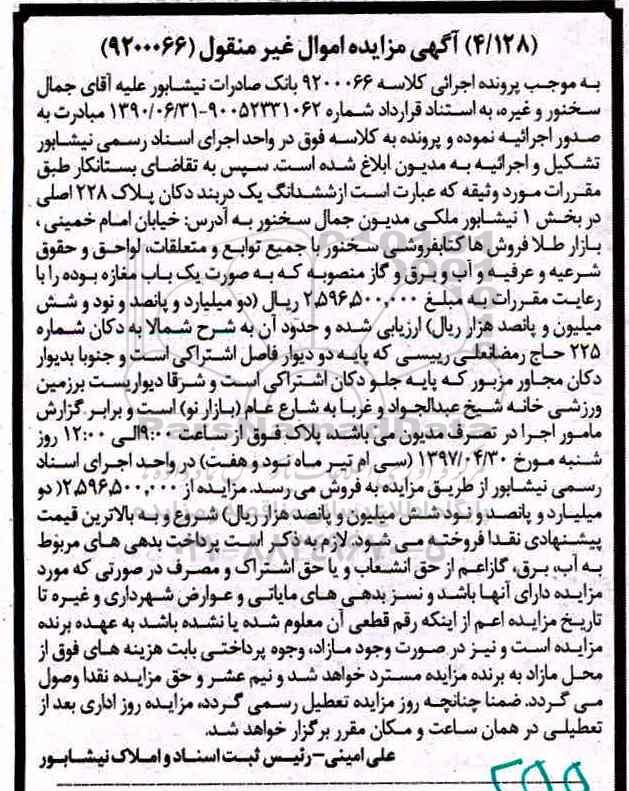 (۴/۱۲۸) آگهی مزایده اموال غیر منقول (۹۲۰۰۰۶۶)
به موجب پرونده اجرائی کلاسه ۹۲۰۰۰۶۶ بانک صادرات نیشابور علیه آقای جمال
سخنور و غیره، به استناد قرارداد شماره ۹۰۰۵۲۳۳۱۰۶۲-۱۳۹۰/۰۶/۳۱ مبادرت به
صدور اجرائیه نموده و پرونده به کلاسه فوق در واحد اجرای اسناد رسمی نیشابور
تشکیل و اجرائیه به مدیون ابلاغ شده است. سپس به تقاضای بستانکار طبق
مقررات مورد وثیقه که عبارت است ازششدانگ یک دربند دکان پلاک ۲۲۸ اصلی
در بخش ۱ نیشابور ملکی مدیون جمال سخنور به آدرس: خیابان امام خمینی،
بازار طلا فروش ها کتابفروشی سخنور با جمیع توابع و متعلقات، لواحق و حقوق
شرعیه و عرفیه و آب و برق و گاز منصوبه که به صورت یک باب مغازه بوده را با
رعایت مقررات به مبلغ ۲,۵۹۶,۵۰۰,۰۰۰ ریال (دو میلیارد و پانصد و نود و شش
میلیون و پانصد هزار ریال) ارزیابی شده و حدود آن به شرح شمالا به دکان شماره
۲۲۵ حاج رمضانعلی رییسی که پایه دو دیوار فاصل اشتراکی است و جنوبا بدیوار
دکان مجاور مزبور که پایه جلو دکان اشتراکی است و شرقا دیواریست برزمین
ورزشی خانه شیخ عبدالجواد و غربا به شارع عام (بازار نو) است و برابر گزارش
مامور اجرا در تصرف مدیون می باشد، پلاک فوق از ساعت ۹:۰۰الی ۱۲:۰۰ روز
شنبه مورخ ۱۳۹۷/۰۴/۳۰ (سی ام تیر ماه نود و هفت) در واحد اجرای اسناد
رسمی نیشابور از طریق مزایده به فروش می رسد. مزایده از ۲,۵۹۶,۵۰۰,۰۰۰( دو
میلیارد و پانصد و نود شش میلیون و پانصد هزار ریال) شروع و به بالاترین قیمت
پیشنهادی نقدا فروخته می شود. لازم به ذکر است پرداخت بدهی های مربوط
به آب، برق، گازاعم از حق انشعاب و یا حق اشتراک و مصرف در صورتی که مورد
مزایده دارای آنها باشد و نسز بدهی های مایاتی و عوارض شهرداری و غیره تا
تاریخ مزایده اعم از اینکه رقم قطعی آن معلوم شده یا نشده باشد به عهده برنده
مزایده است و نیز در صورت وجود مازاد، وجوه پرداختی بابت هزینه های فوق از
محل مازاد به برنده مزایده مسترد خواهد شد و نیم عشر و حق مزایده نقدا وصول
می گردد. ضمنا چنانچه روز مزایده تعطیل رسمی گردد، مزایده روز اداری بعد از
تعطیلی در همان ساعت و مکان مقرر برگزار خواهد شد.
علی امینی-رئیس ثبت اسناد و املاک نیشابور